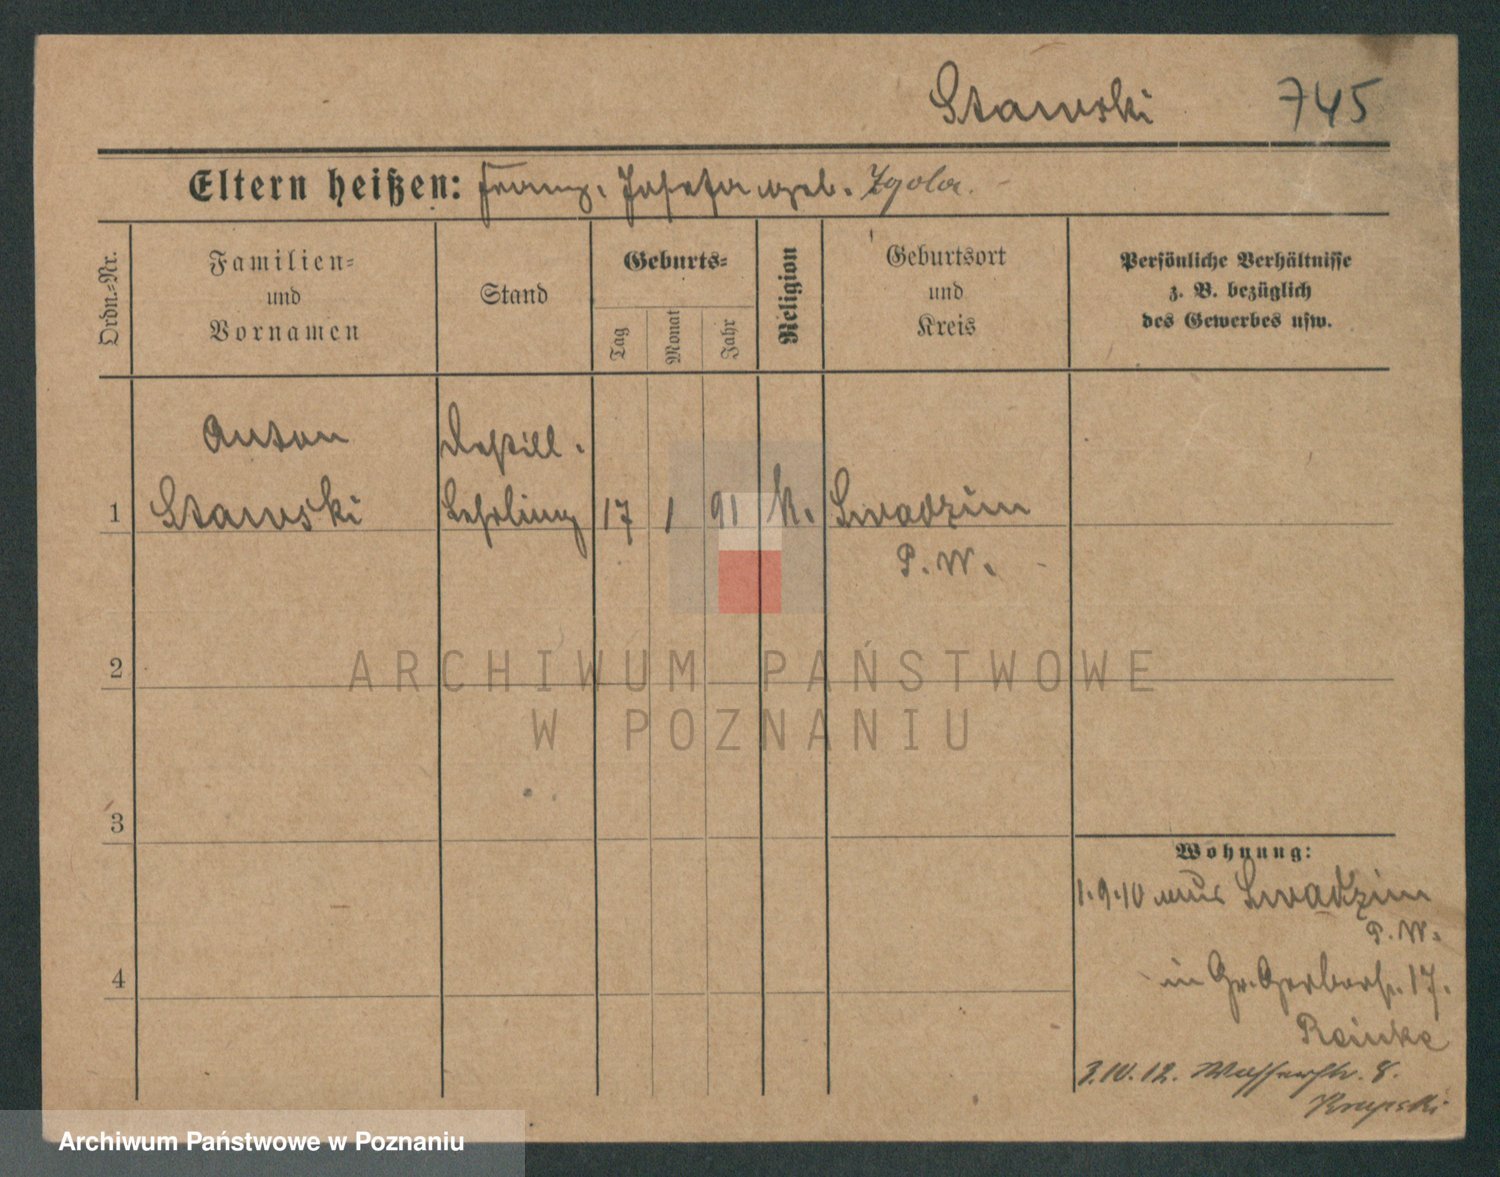 Stawski 745
Eltern heißen: Franz, Josefa geb. Zgola.
Ordn.-Nr.
Familien-
und
Vornamen
Stand
Geburts-
Tag
Monat
Jahr
Religion
Geburtsort
und
Kreis
Persönliche Verhältnisse
z. B. bezüglich
des Gewerbes usw.
Anton Destill.
1 Stawski Lehrling 17 1 91 k. Swadzim
P. W.
2
ARCHIWUM PAŃSTWOWE
W POZNANIU
3
Wohnung:
1.9.10 aus Swadzim
P. W.
4
in Gr. Gerberstr. 17.
Reinke
3.10.12. Wasserstr. 8.
Krupski
Archiwum Państwowe w Poznaniu